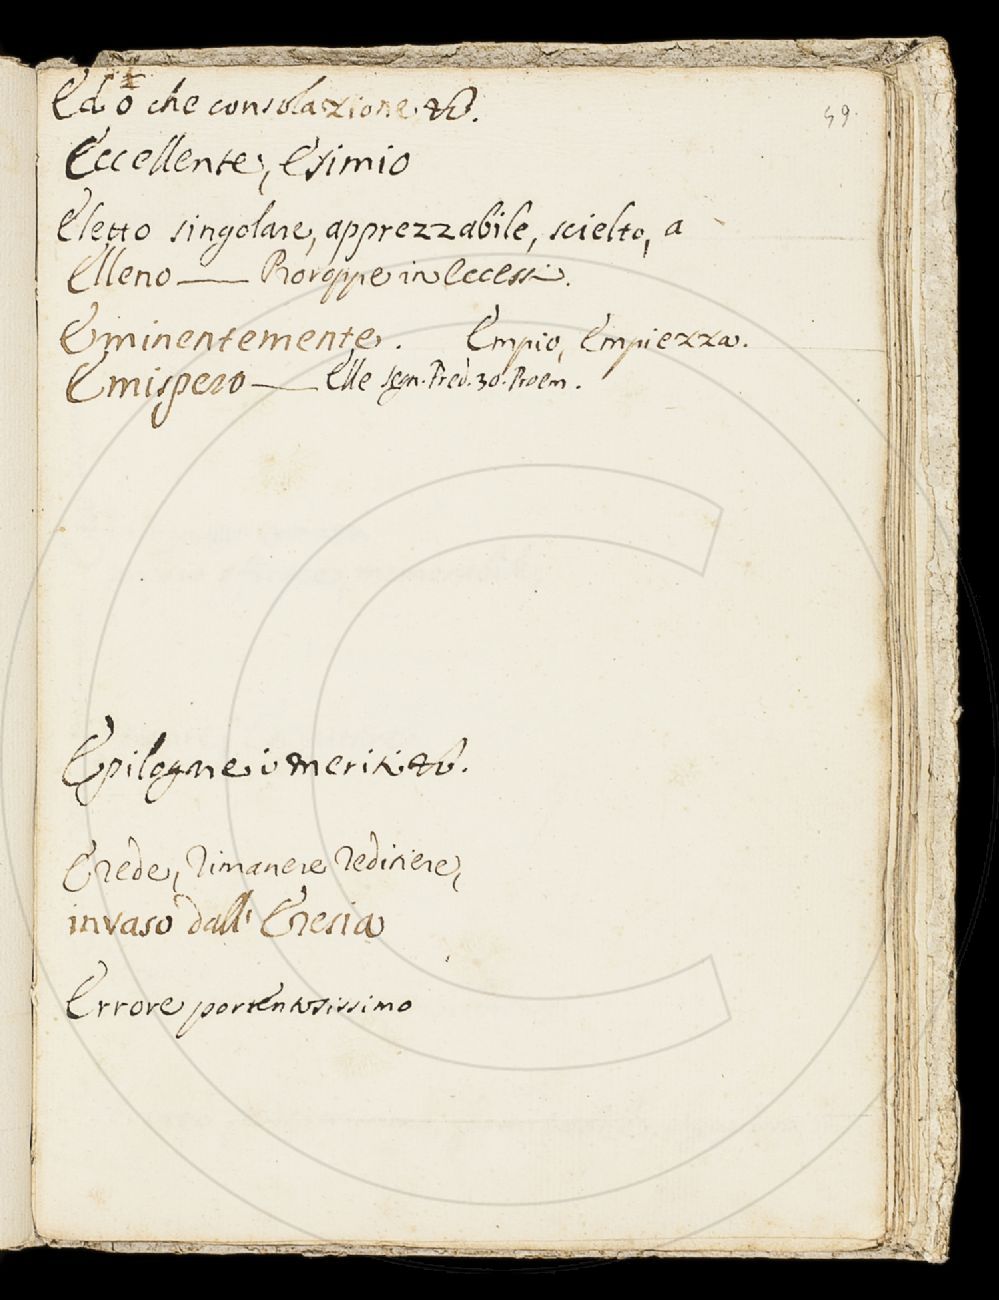 Ed ò che consolazione &c.
59.
Eccellente, Esimio
Eletto singolare, apprezzabile, scielto, a
Elleno — Proruppe in eccessi.
Eminentemente. Empio, Empiezza.
Emispero — Elle segn. Pred. 30. Proem.
Epilogare i meriti &c.
Erede, rimanere redittiere,
invaso dall' Eresia
Errore portentosissimo